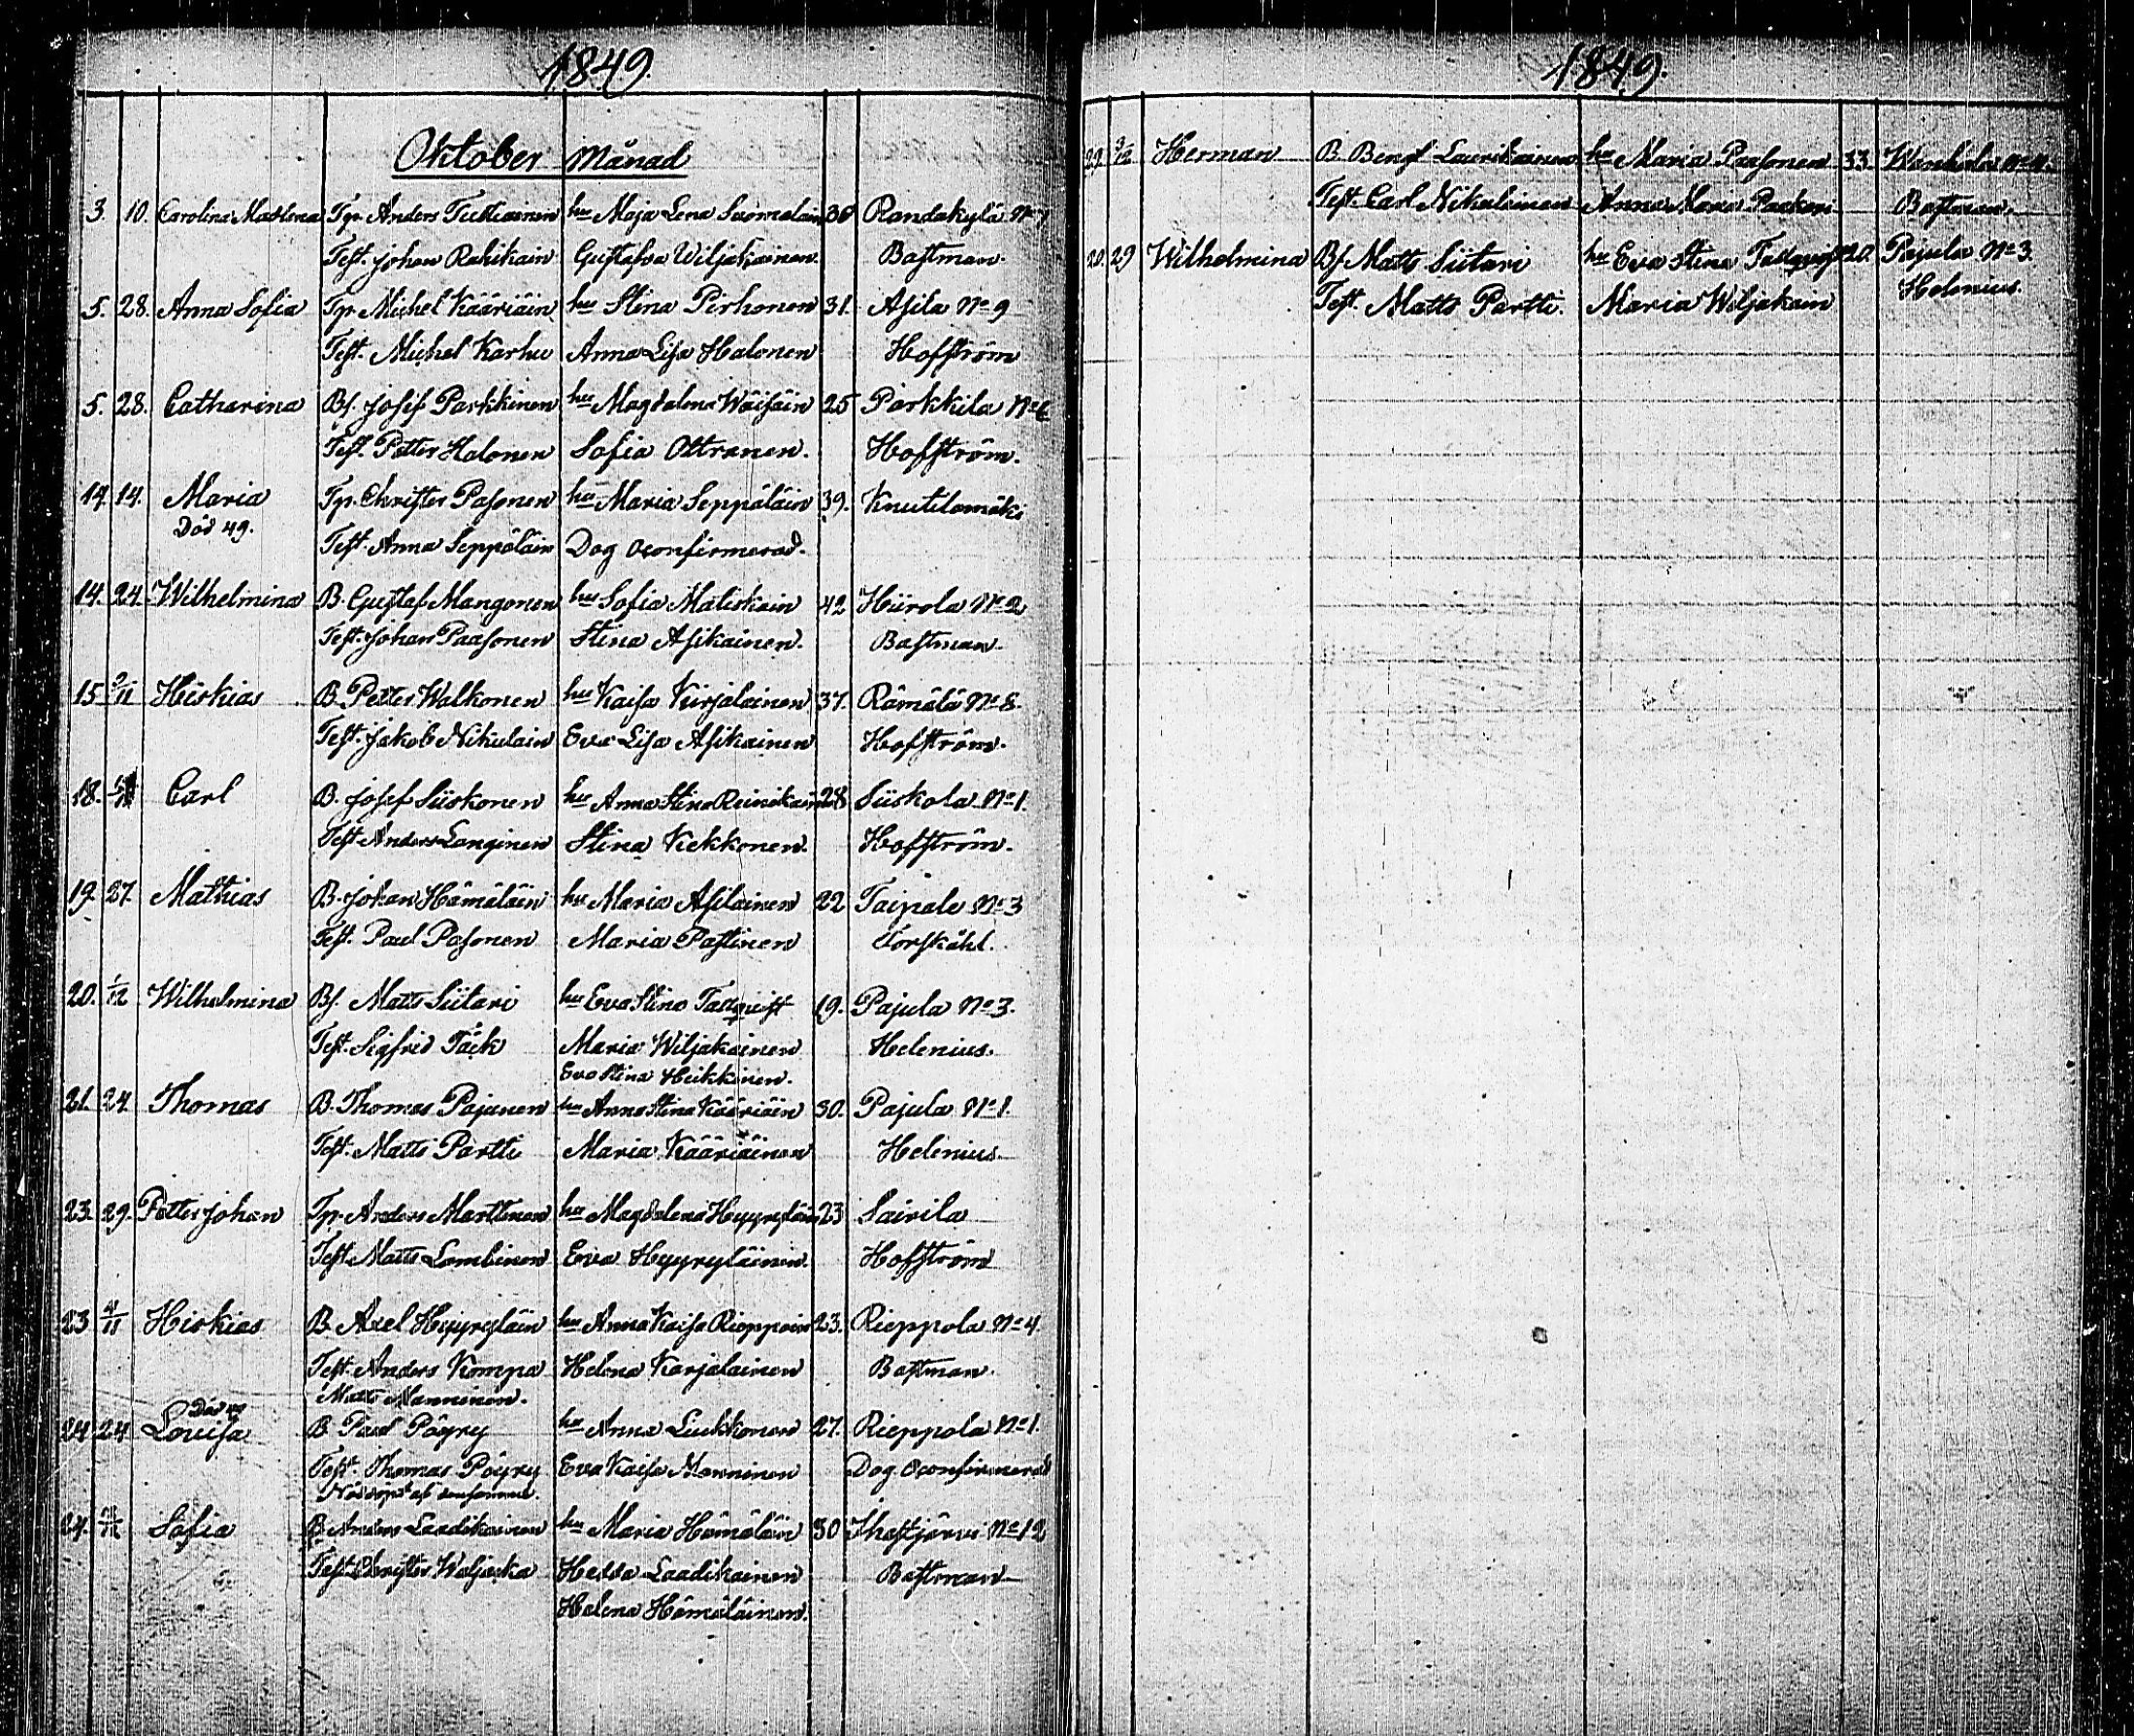 1849.
Oktober Månad
3. 10. Carolina Madlena Tp. Anders Tuttiainen hu Maja Lena Suomalain 36 Randakylä No 7
Test. Johan Rahikain Gustafva Wiljakainen. Bastman.
5. 28. Anna Sofia Tp. Michel Kääriäin hu Stina Pirhonen 31. Asila No 9
Test. Michel Karhu Anna Lisa Halonen Hoffström
5. 28. Catharina Bf. Josef Parkkinen hu Magdalena Wäisäin 25 Parkkila No 6
Test. Petter Halonen Sofia Ottranen. Hoffström.
14. 14. Maria Tp. Christer Pasonen hu Maria Seppäläin 39. Knutilamäki
Död 49.
Test. Anna Seppäläin Dog oconfirmerad.
14. 24. Wilhelmina B. Gustaf Mangonen hu Sofia Matiskain 42 Hiirola No 2
Test. Johan Paasonen Stina Asikainen. Bastman.
15 2/11 Hiskias B. Petter Walkonen hu Kaisa Kirjalainen 37. Rämälä No 8.
Test. Jakob Nikulain Eva Lisa Asikainen Hoffström.
18. Carl B. Josef Siiskonen hu Anna Stina Reinikain 28 Siiskola No 1.
Test Anders Langinen Stina Kekkonen. Hoffström.
19. 27. Mathias B. Johan Hämäläin hu Maria Asilainen 22 Taipale No 3
Test. Paul Pasonen Maria Pastinen Forskåhl.
20. 1/12 Wilhelmina Bf. Matts Siitari hu Eva Stina Tallqvist 19. Pajula No 3.
Test. Sigfrid Täck Maria Wiljakainen Helenius.
Eva Stina Heikkinen.
21. 24 Thomas B. Thomas Pajunen hu Anna Stina Kääriäin 30. Pajula No 1.
Test. Matts Partti Maria Kääriäinen Helenius.
23. 29. Petter Johan Tp. Anders Marttinen hu Magdalena Hyyryläin 23 Sairila
Test Matts Lambinen Eva Hyyryläinen. Hoffström
23 4/11 Hiskias B. Axel Hyyryläin hu Anna Kaisa Rieppoin 23. Rieppola No 4.
Test. Anders Kompa Helena Karjalainen Bastman.
Matts Manninen.
Död 49
24 24 Lovisa B. Paul Pöyry hu Anna Liukkonen 27. Rieppola No 1.
Test. Thomas Pöyry Eva Kaisa Manninen Dog oconfirmerad
Nöddöpt af densamme.
24. Sofia B. Anders Laadikainen hu Maria Hämäläin 30 Ihastjärvi No 12
Test. Christer Waljacka Hedda Laadikainen Bastman
Helena Hämäläinen.
1849.
29 2/12 Herman B. Bengt Laurikainen hu Maria Paasonen 33. Wanhala No 4.
Test. Carl Nikulainen Anna Maria Bastman.
20. 29 Wilhelmina Bf Matts Siitari hu Eva Stina Tallqvist 20. Pajula No 3.
Test. Matts Partti. Maria Wiljakain Helenius.